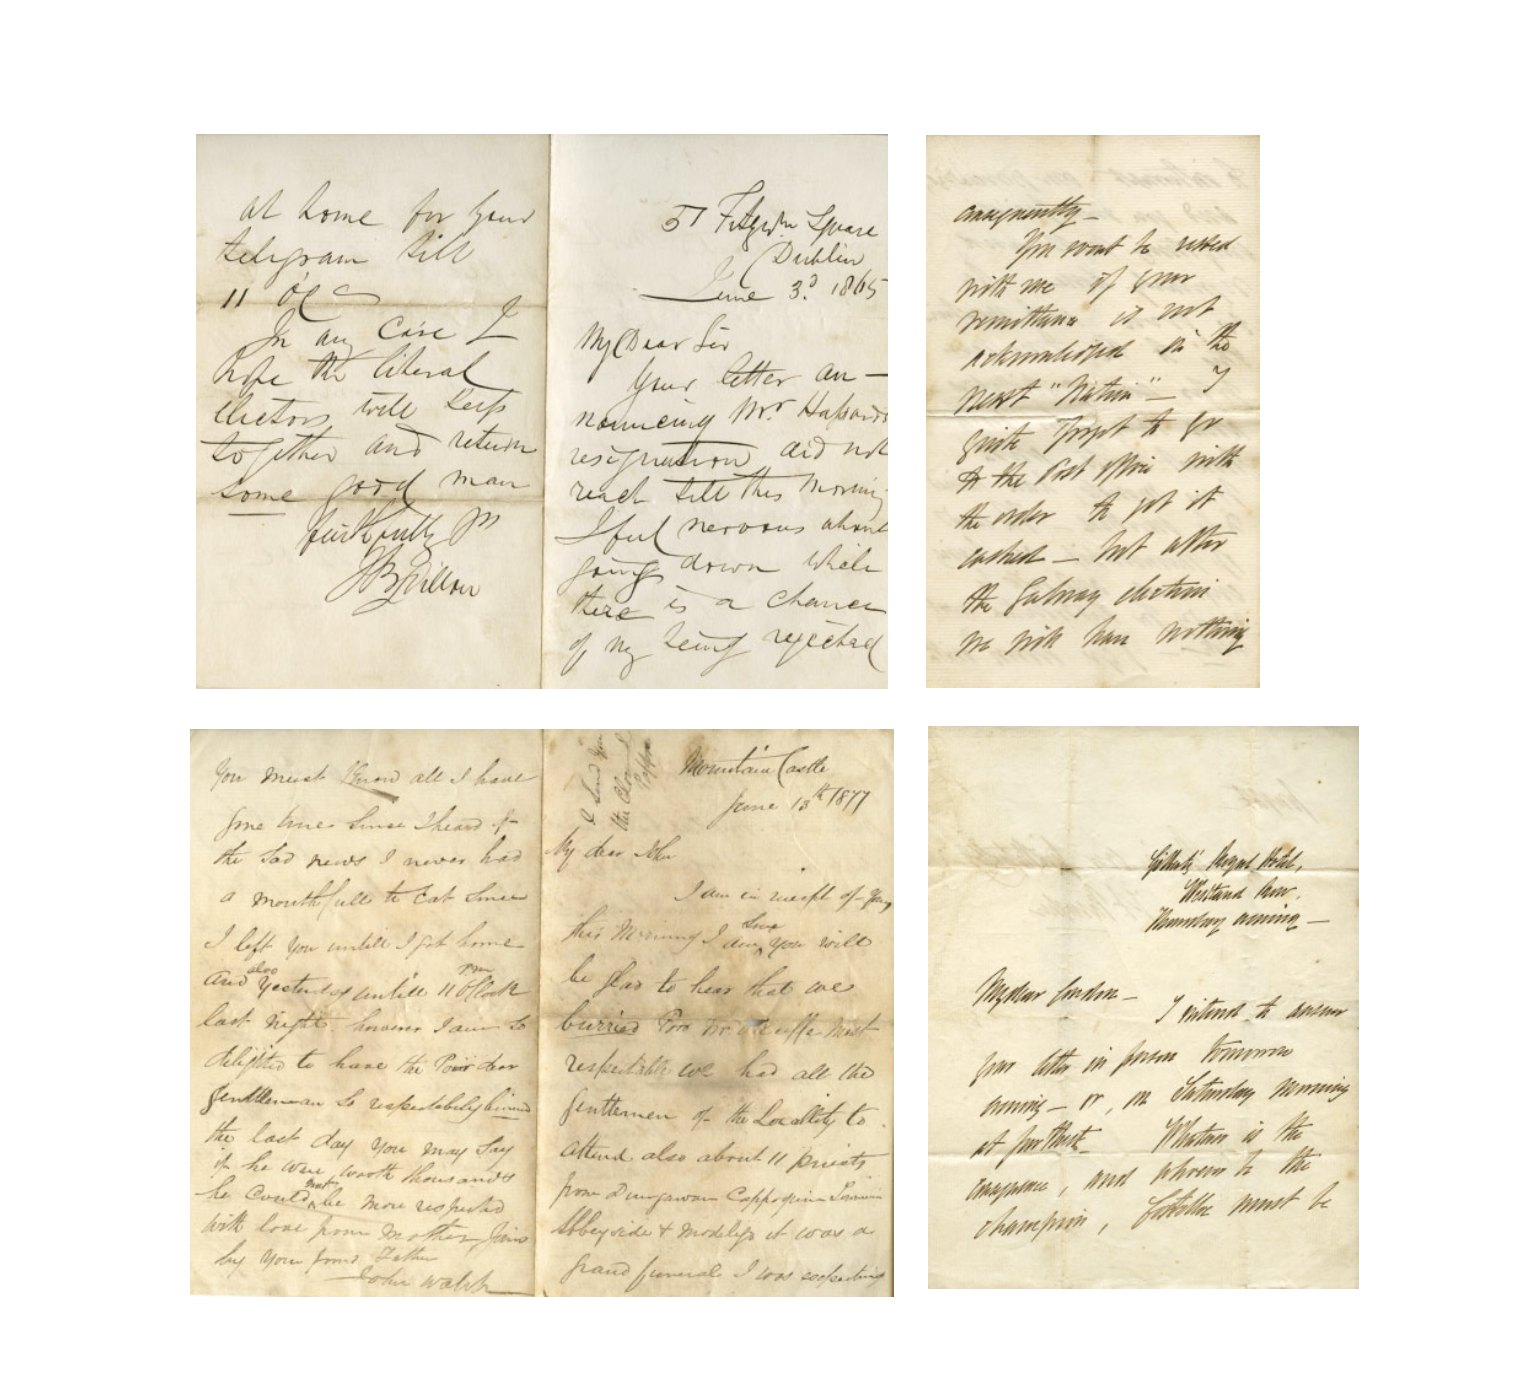 at home for your
telegram till
11 oC
In any case I
hope the liberal
electors will keep
together and return
some good man
faithfully yrs
JB Dillon
51 Fitzwm Square
Dublin
June 3d 1865
My Dear Sir
Your letter an-
nouncing Mr Hassards
resignation did not
reach till this morning
I feel nervous about
going down while
there is a chance
of my being rejected
consequently -
You must be vexed
with me if your
remittance is not
acknowledged in the
next "Nation" - I
quite forgot to go
to the Post office with
the order to get it
cashed - but after
the Galway election
we will have nothing
You must know all I have
gone since I heard of
the sad news I never had
a mouthfull to eat since
I left you untill I got home
and also yesterday untill 11 O'Clock pm
last night however I am so
delighted to have the Poor dear
gentleman so respectabily burried
the last day you may say
if he were worth thousands
he could not be more respected
with love from Mother, Joins
by your fond Father
John Walsh
I send you
the
Mountain Castle
June 13th 1877
My dear John
I am in receipt of yours
this Morning I am sure you will
be glad to hear that we
burried Poor Mr most
respectable we had all the
gentlemen of the Locallity to
attend also about 11 priests
from Dungarvan Cappoquin
Abbeyside & Modeligo it was a
grand funeral I was expecting
Royal Hotel,
Westland Row.
Thursday evening -
My dear -
I intend to answer
your letter in person tomorrow
evening - or, on Saturday morning
at furthest - Whatever is the
consequence, and whoever be the
champion, must be